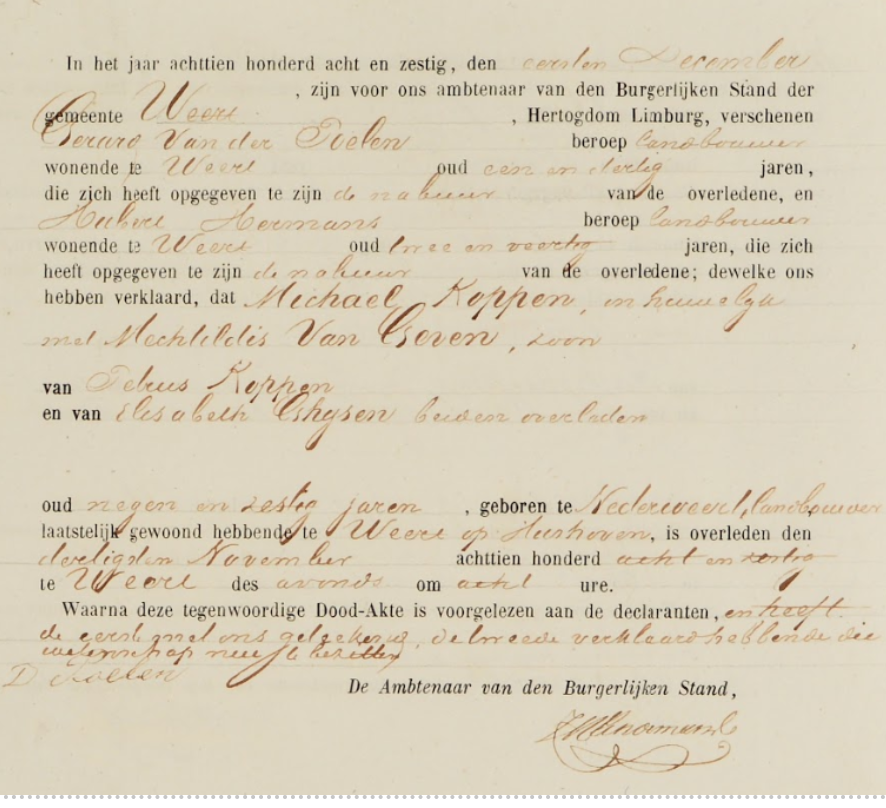 In het jaar achttien honderd acht en zestig, den eersten December
, zijn voor ons ambtenaar van den Burgerlijken Stand der
gemeente Weert , Hertogdom Limburg, verschenen
Gerard Van der Poelen beroep landbouwer
wonende te Weert oud een en dertig jaren,
die zich heeft opgegeven te zijn de nabuur van de overledene, en
Hubert Hermans beroep landbouwer
wonende te Weert oud twee en veertig jaren, die zich
heeft opgegeven te zijn de nabuur van de overledene; dewelke ons
hebben verklaard, dat Michael Koppen, in huwelijk
met Mechtildis Van Geven, zoon
van Petrus Koppen
en van Elisabeth Ghysen beiden overleden
oud negen en zestig jaren , geboren te Nederweert, landbouwer
laatstelijk gewoond hebbende te Weert op Hushoven, is overleden den
dertigsten November achttien honderd acht en zestig
te Weert des avonds om acht ure.
Waarna deze tegenwoordige Dood-Akte is voorgelezen aan de declaranten, en heeft
de eerste met ons geteekend, de tweede verklaard hebbende die
wetenschap niet te bezitten
Poelen
De Ambtenaar van den Burgerlijken Stand,